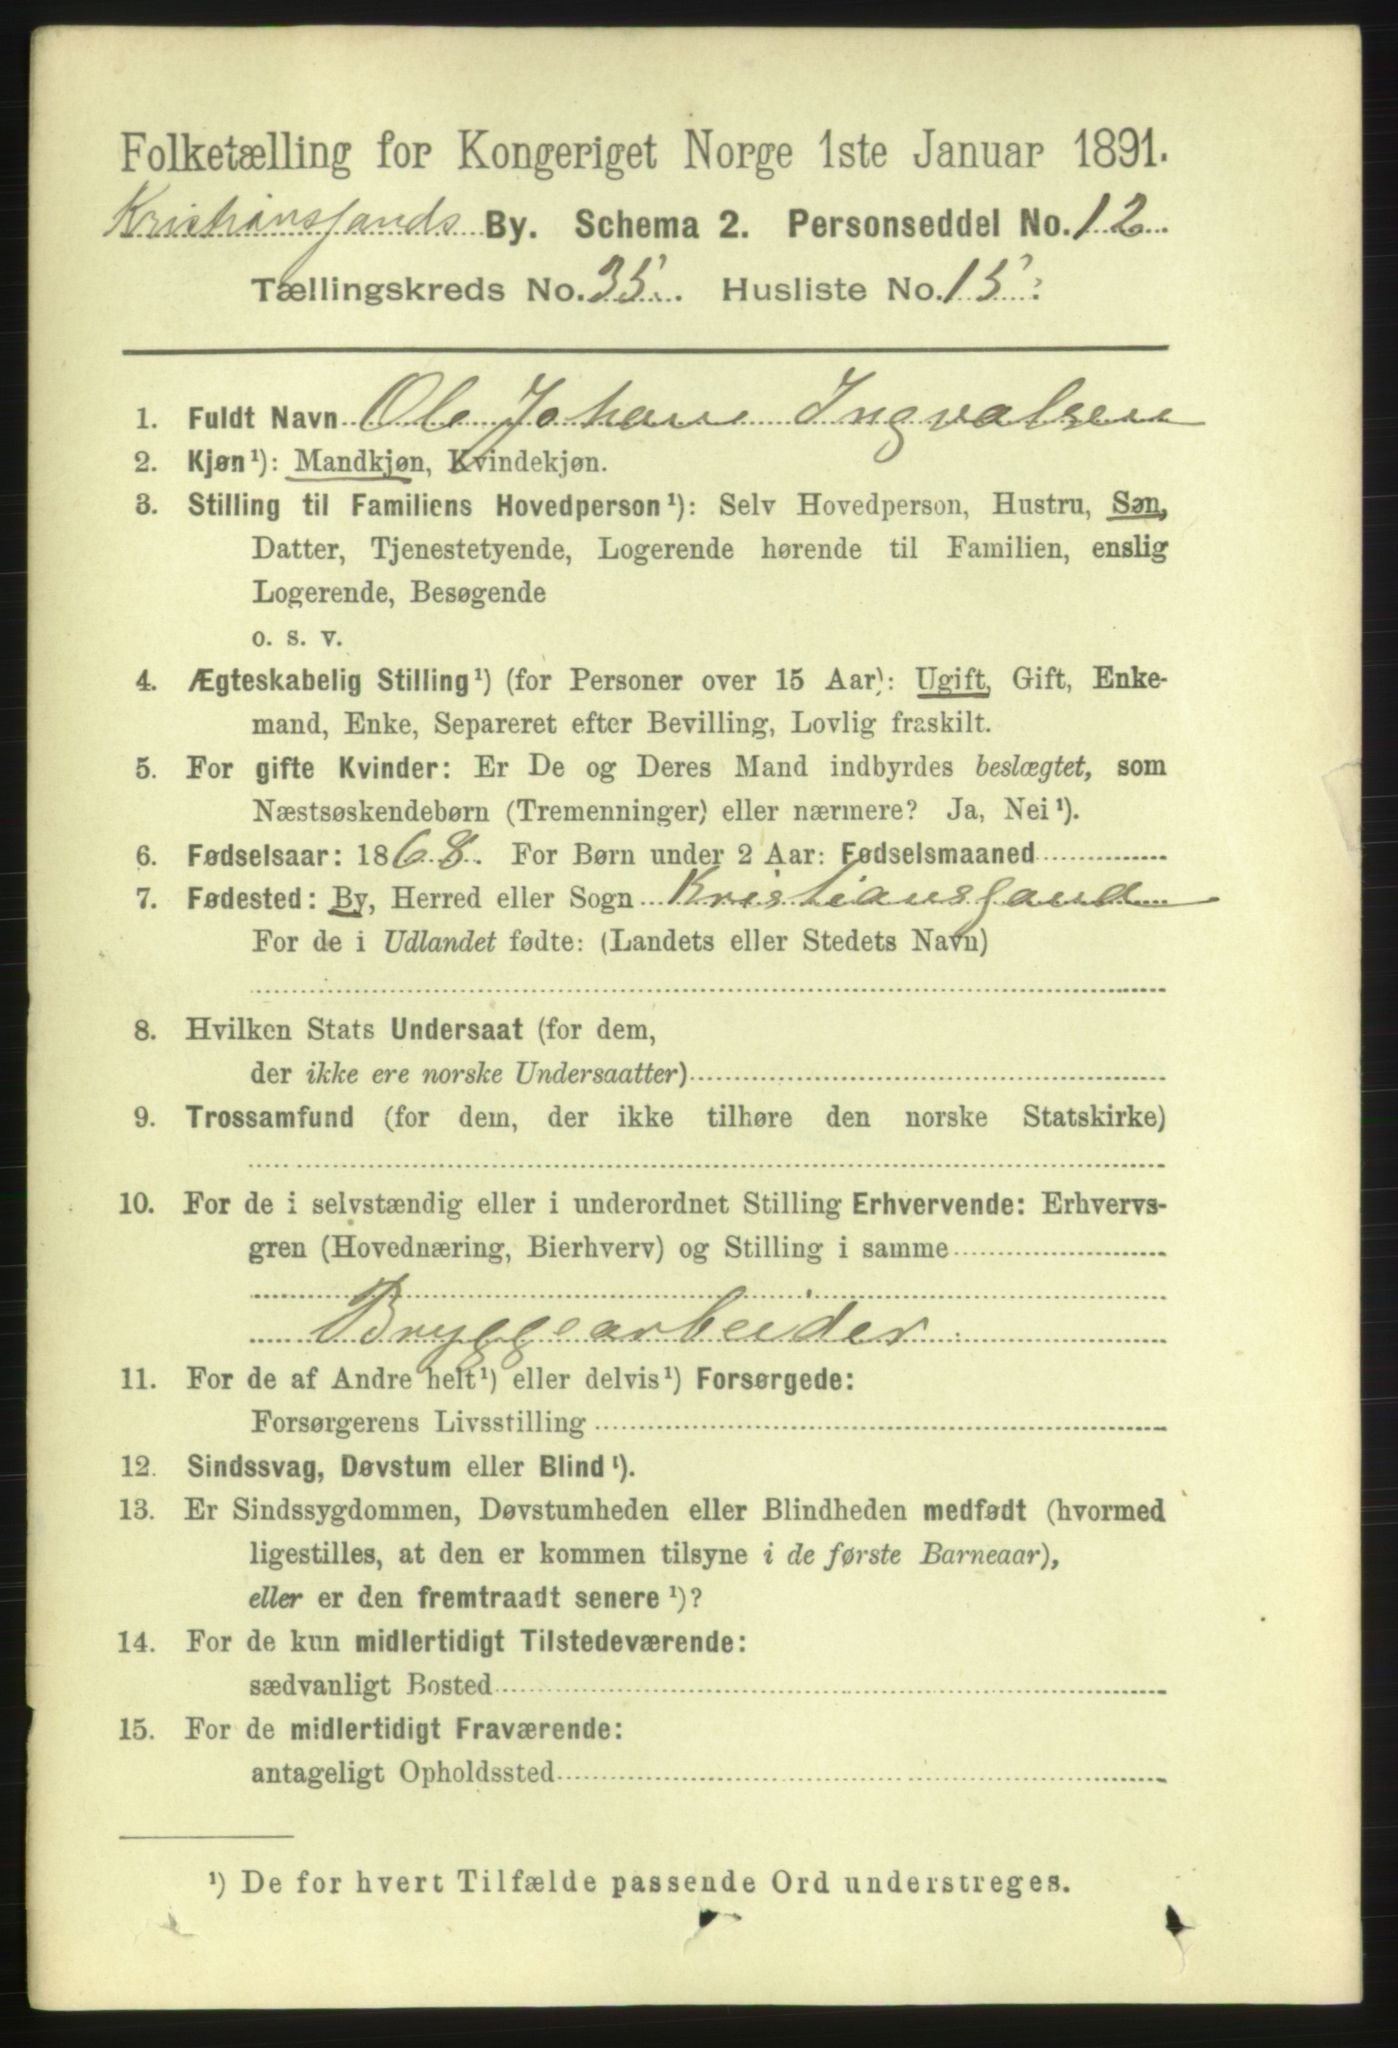 Folketælling for Kongeriget Norge 1ste Januar 1891.
Kristianssands By. Schema 2. Personseddel No. 12
Tællingskreds No. 35. Husliste No. 15.
1. Fuldt Navn Ole Johan Ingvalsen
2. Kjøn¹): Mandkjøn, Kvindekjøn.
3. Stilling til Familiens Hovedperson¹): Selv Hovedperson, Hustru, Søn,
Datter, Tjenestetyende, Logerende hørende til Familien, enslig
Logerende, Besøgende
o. s. v.
4. Ægteskabelig Stilling¹) (for Personer over 15 Aar): Ugift, Gift, Enke-
mand, Enke, Separeret efter Bevilling, Lovlig fraskilt.
5. For gifte Kvinder: Er De og Deres Mand indbyrdes beslægtet, som
Næstsøskendebørn (Tremenninger) eller nærmere? Ja, Nei¹).
6. Fødselsaar: 1868. For Børn under 2 Aar: Fødselsmaaned
7. Fødested: By, Herred eller Sogn Kristianssand
For de i Udlandet fødte: (Landets eller Stedets Navn)
8. Hvilken Stats Undersaat (for dem,
der ikke ere norske Undersaatter)
9. Trossamfund (for dem, der ikke tilhøre den norske Statskirke)
10. For de i selvstændig eller i underordnet Stilling Erhvervende: Erhvervs-
gren (Hovednæring, Bierhverv) og Stilling i samme
Bryggearbeider
11. For de af Andre helt¹) eller delvis¹) Forsørgede:
Forsørgerens Livsstilling
12. Sindssvag, Døvstum eller Blind¹).
13. Er Sindssygdommen, Døvstumheden eller Blindheden medfødt (hvormed
ligestilles, at den er kommen tilsyne i de første Barneaar),
eller er den fremtraadt senere¹)?
14. For de kun midlertidigt Tilstedeværende:
sædvanligt Bosted
15. For de midlertidigt Fraværende:
antageligt Opholdssted
¹) De for hvert Tilfælde passende Ord understreges.